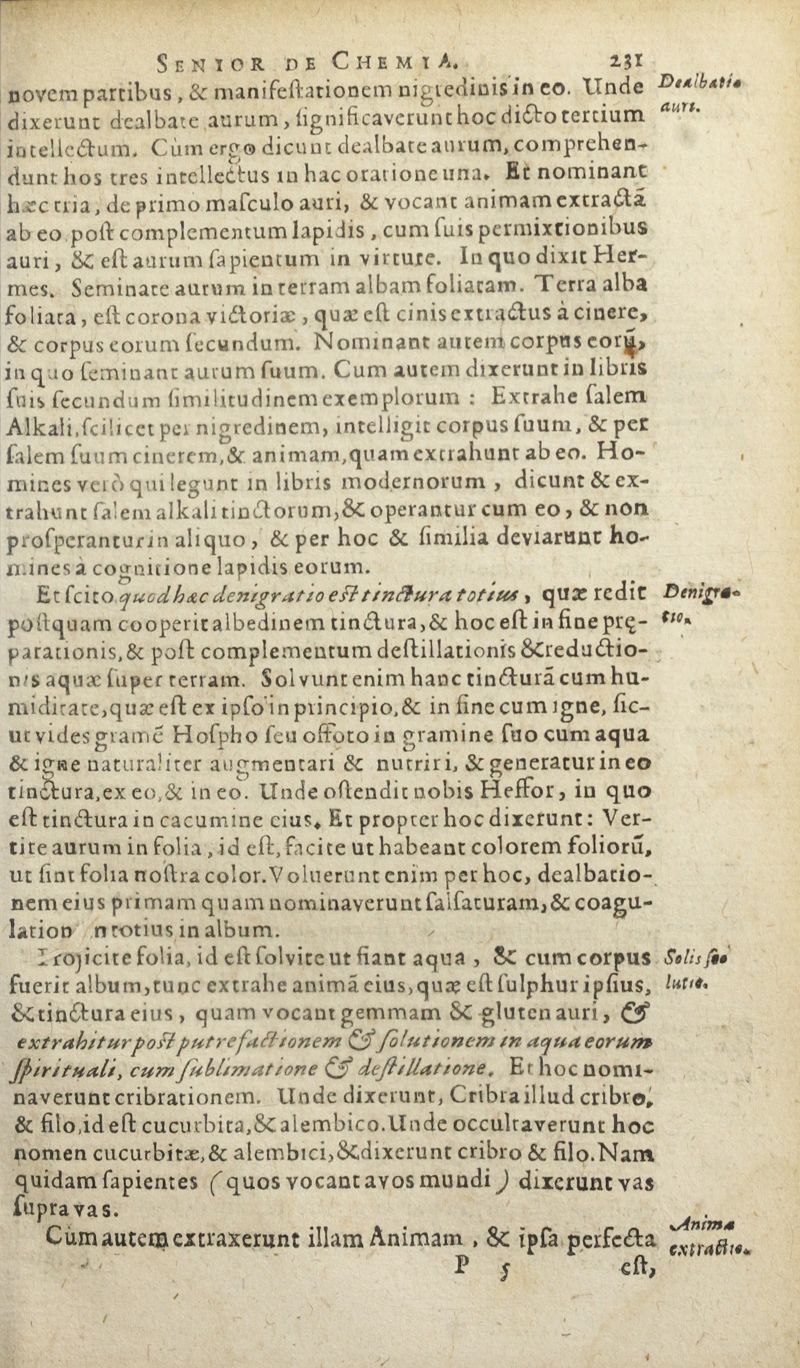 SENIOR DE CHEMIA. 231
novem partibus, & manifeſtationem nigredinis in eo. Unde
Dealbatio
dixerunt dealbate aurum, ſignificaverunt hoc dicto tertium
auri.
intellectum. Cùm ergo dicunt dealbate aurum, comprehen-
dunt hos tres intellectus in hac oratione una. Et nominant
hæc tria, de primo maſculo auri, & vocant animam extractã
ab eo poſt complementum lapidis, cum ſuis permixtionibus
auri, & eſt aurum ſapientum in virture. In quo dixit Her-
mes. Seminate aurum in terram albam foliatam. Terra alba
foliata, eſt corona victoriæ, quæ eſt cinis extractus à cinere,
& corpus eorum ſecundum. Nominant autem corpus eorũ,
in quo ſeminant aurum ſuum. Cum autem dixerunt in libris
ſuis ſecundum ſimilitudinem exemplorum : Extrahe ſalem
Alkali, ſcilicet per nigredinem, intelligit corpus ſuum, & per
ſalem ſuum cinerem, & animam, quam extrahunt ab eo. Ho-
mines verò qui legunt in libris modernorum, dicunt & ex-
trahunt ſalem alkali tinctorum, & operantur cum eo, & non
proſperantur in aliquo, & per hoc & ſimilia deviarunt ho-
mines à cognitione lapidis eorum.
Et ſcito quod hæc denigratio eſt tinctura totius, quæ redit
Denigra-
poſtquam cooperit albedinem tinctura, & hoc eſt in fine prę-
tio.
parationis, & poſt complementum deſtillationis & reductio-
nis aquæ ſuper terram. Solvunt enim hanc tincturã cum hu-
miditate, quæ eſt ex ipſo in principio, & in fine cum igne, ſic-
ut vides gramẽ Hoſpho ſeu offoto in gramine ſuo cum aqua
& igne naturaliter augmentari & nutriri, & generatur in eo
tinctura, ex eo, & in eo. Unde oſtendit nobis Heffor, in quo
eſt tinctura in cacumine eius. Et propter hoc dixerunt: Ver-
tite aurum in folia, id eſt, facite ut habeant colorem foliorũ,
ut ſint folia noſtra color. Voluerunt enim per hoc, dealbatio-
nem eius primam quam nominaverunt falſaturam, & coagu-
lation n totius in album.
Projicite folia, id eſt ſolvite ut fiant aqua, & cum corpus
Solis ſo-
fuerit album, tunc extrahe animã eius, quæ eſt ſulphur ipſius,
lutio.
& tinctura eius, quam vocant gemmam & gluten auri, &
extrahitur poſt putrefactionem & ſolutionem in aqua eorum
ſpirituali, cum ſublimatione & deſtillatione. Et hoc nomi-
naverunt cribrationem. Unde dixerunt, Cribra illud cribro,
& filo, id eſt cucurbita, & alembico. Unde occultaverunt hoc
nomen cucurbitæ, & alembici, & dixerunt cribro & filo. Nam
quidam ſapientes (quos vocant avos mundi) dixerunt vas
ſupra vas.
Cùm autem extraxerunt illam Animam, & ipſa perfecta
Anima
extractio.
P 5 eſt,